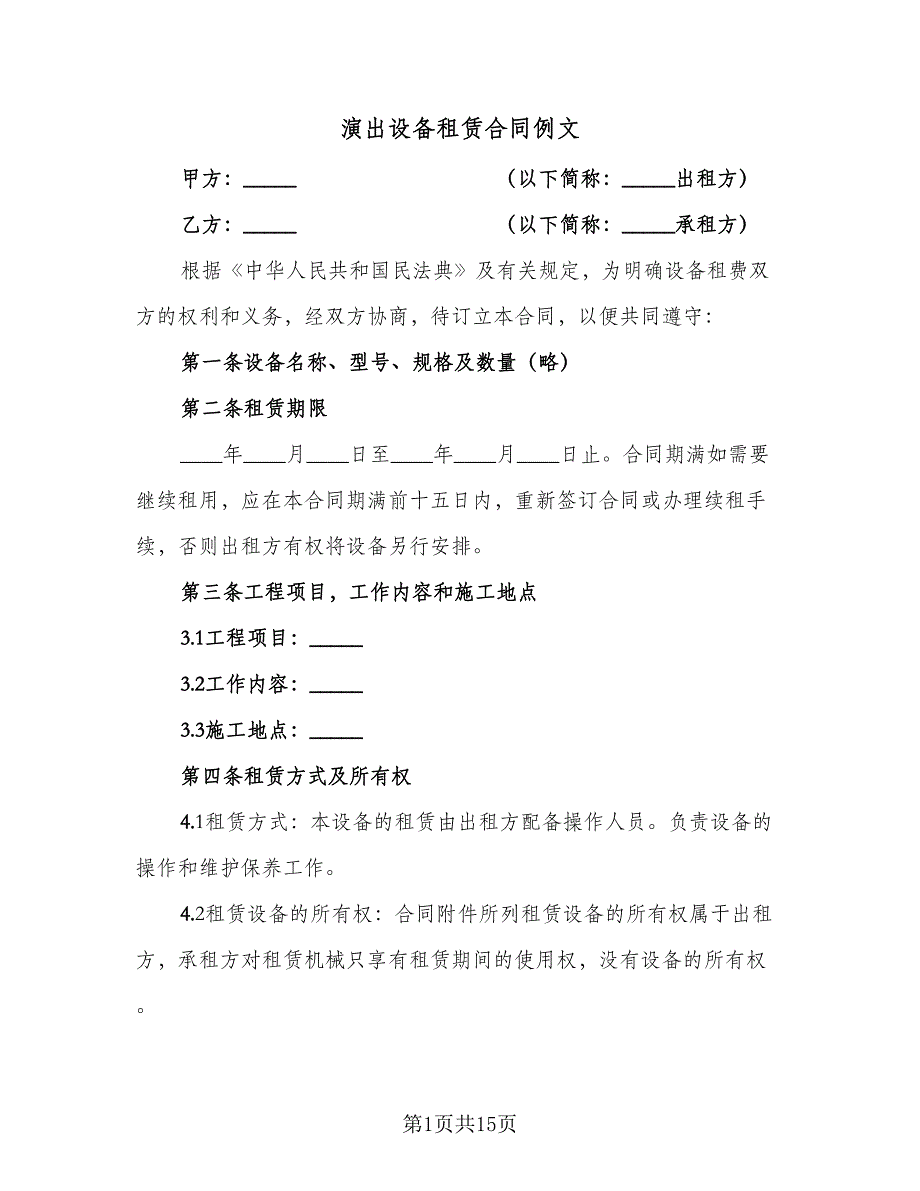 演出设备租赁合同例文
甲方：_____ （以下简称：_____出租方）
乙方：_____ （以下简称：_____承租方）
根据《中华人民共和国民法典》及有关规定，为明确设备租费双
方的权利和义务，经双方协商，待订立本合同，以便共同遵守：
第一条设备名称、型号、规格及数量（略）
第二条租赁期限
____年____月____日至____年____月____日止。合同期满如需要
继续租用，应在本合同期满前十五日内，重新签订合同或办理续租手
续，否则出租方有权将设备另行安排。
第三条工程项目，工作内容和施工地点
3.1工程项目：_____
3.2工作内容：_____
3.3施工地点：_____
第四条租赁方式及所有权
4.1租赁方式：本设备的租赁由出租方配备操作人员。负责设备的
操作和维护保养工作。
4.2租赁设备的所有权：合同附件所列租赁设备的所有权属于出租
方，承租方对租赁机械只享有租赁期间的使用权，没有设备的所有权
。
第1页共15页